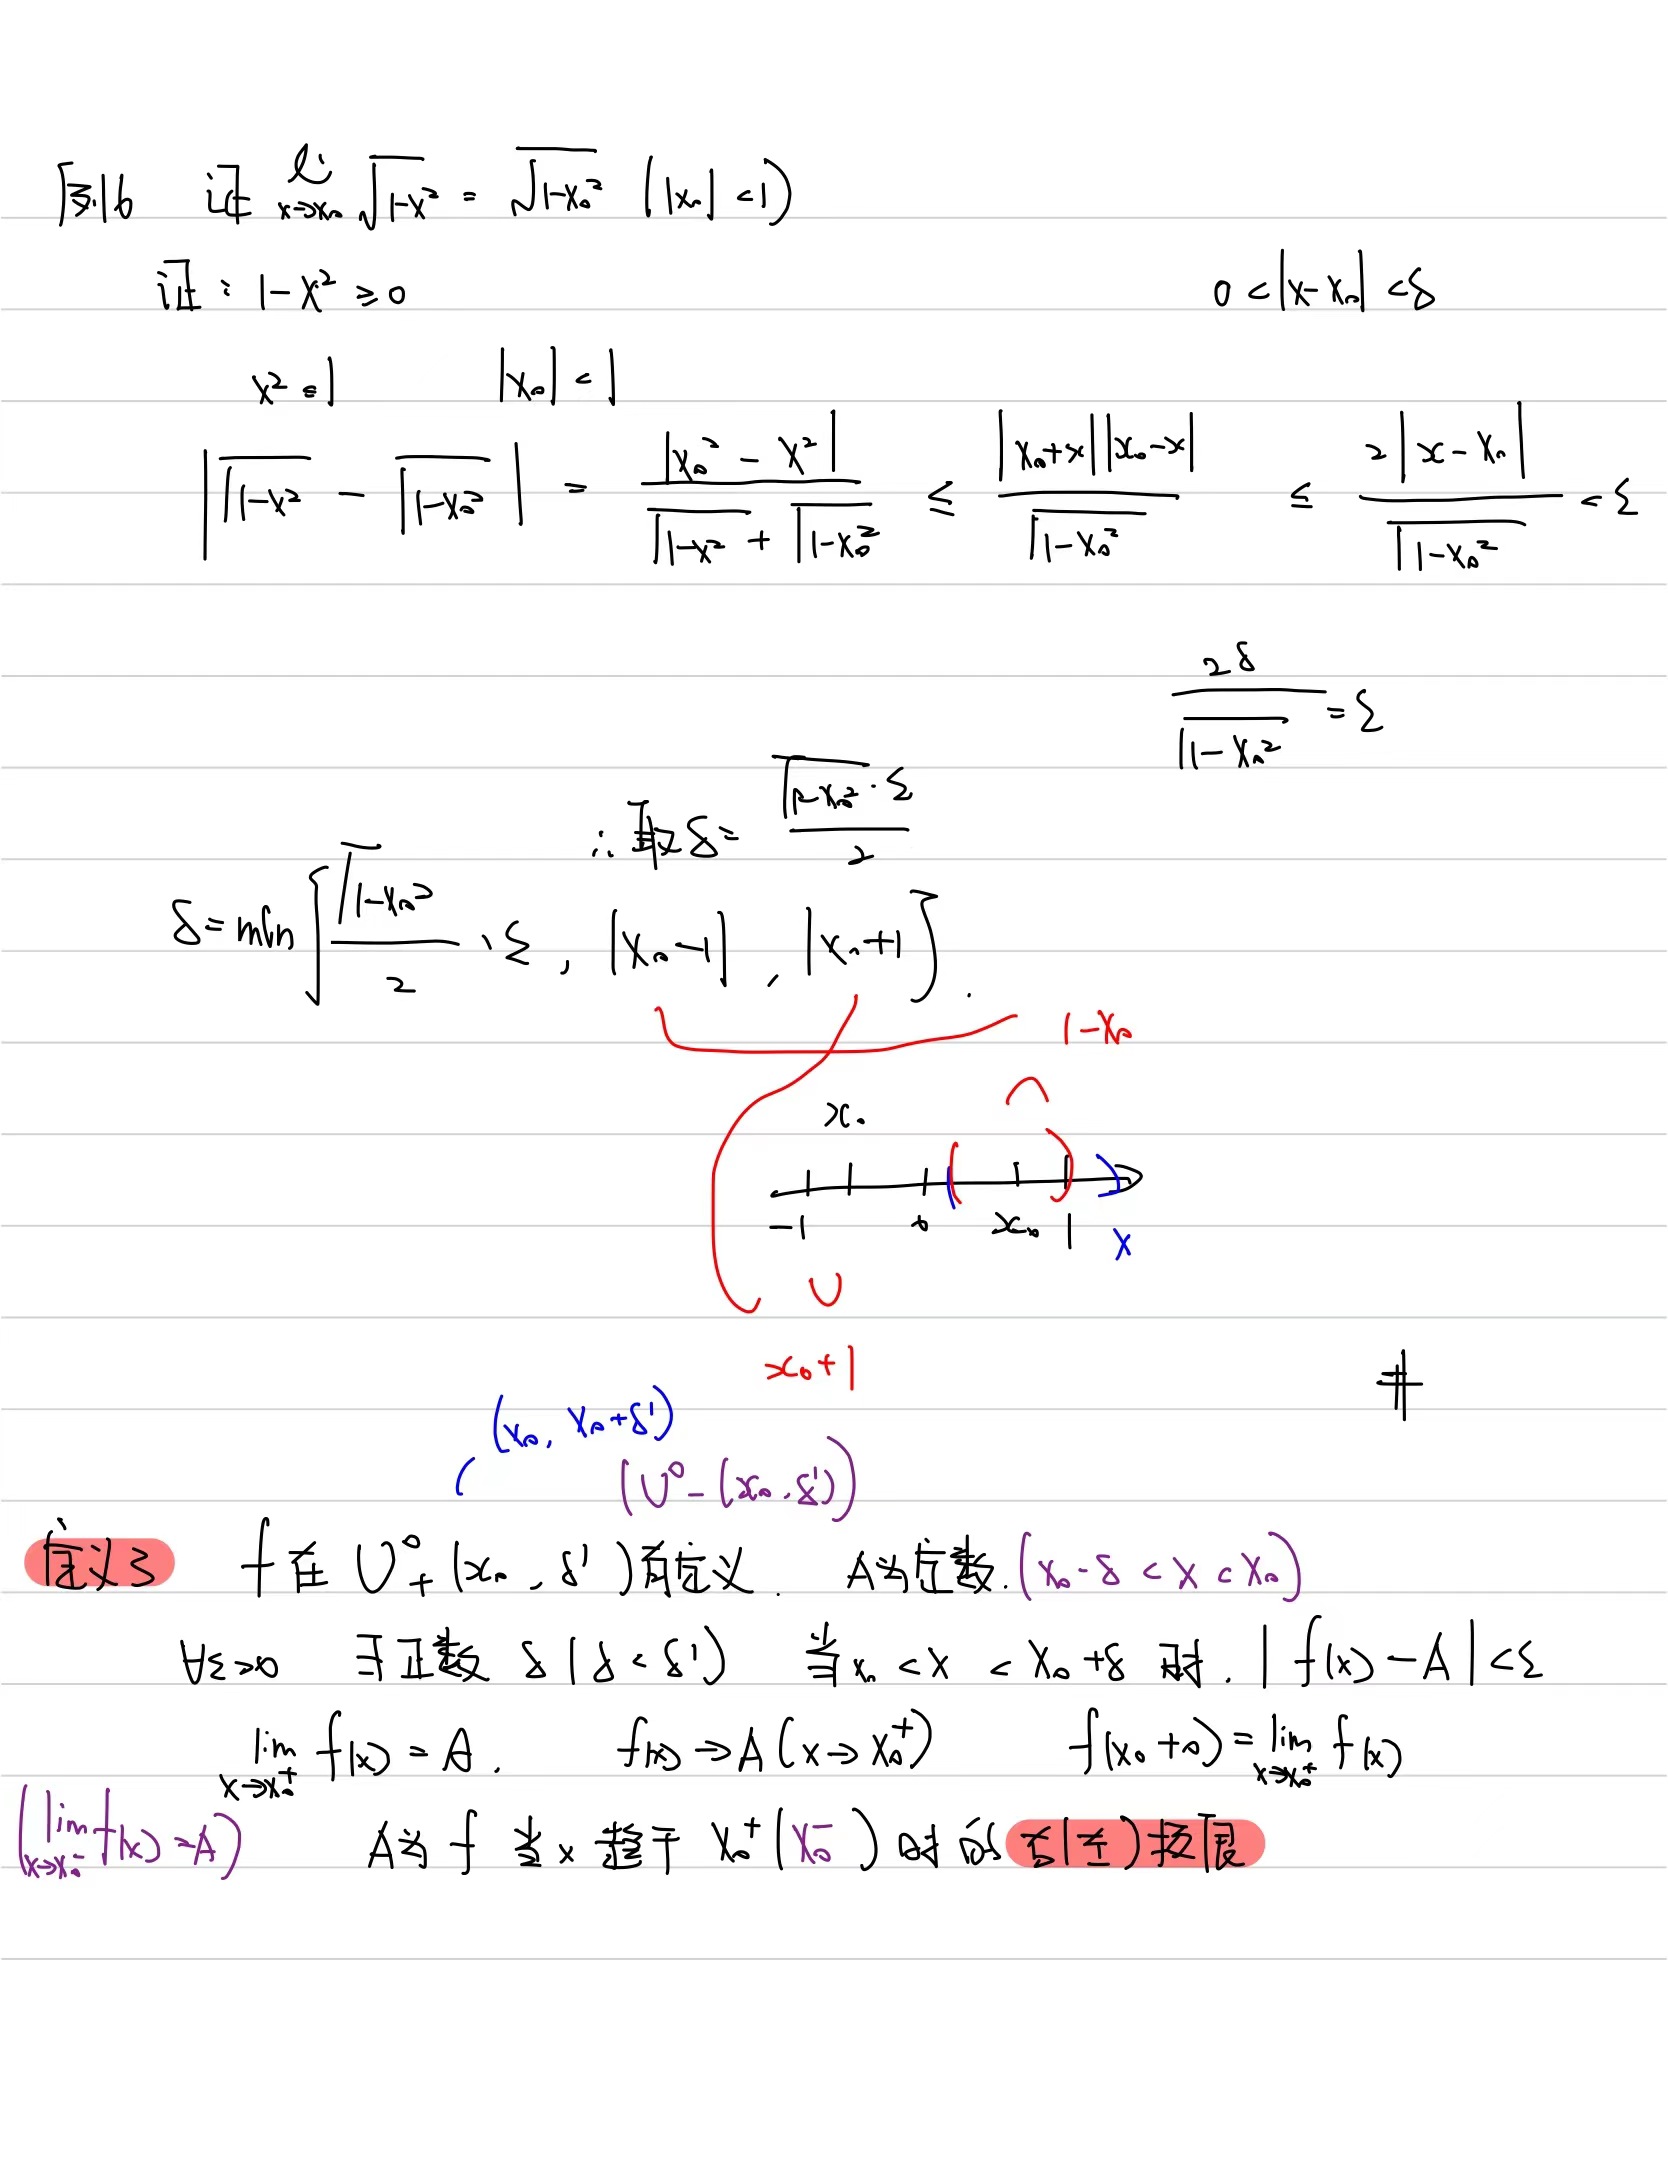 例6 证 li x→x₀ √1-x² = √1-x₀² (|x₀| < 1)
证: 1-x² ≥ 0 0 < |x-x₀| < δ
x² ≤ 1 |x₀| < 1
|√1-x² - √1-x₀²| = |x₀² - x²| / (√1-x² + √1-x₀²) ≤ |x₀+x||x₀-x| / √1-x₀² ≤ 2|x-x₀| / √1-x₀² < ε
2δ / √1-x₀² = ε
∴ 取 δ = √1-x₀² · ε / 2
δ = min { √1-x₀² / 2 · ε, |x₀-1|, |x₀+1| }.
1-x₀
x₀
-1 0 x₀ 1 x
x₀+1
#
(x₀, x₀+δ')
(U°₋(x₀, δ'))
定义3 f在 U°₊(x₀, δ')有定义. A为定数. (x₀-δ < x < x₀)
∀ε>0 ∃正数 δ (δ < δ') 当 x₀ < x < x₀+δ 时. |f(x) - A| < ε
lim x→x₀⁺ f(x) = A. f(x) → A (x→x₀⁺) f(x₀+0) = lim x→x₀⁺ f(x)
(lim x→x₀⁻ f(x) = A) A为 f 当 x 趋于 x₀⁺(x₀⁻) 时的 右(左)极限